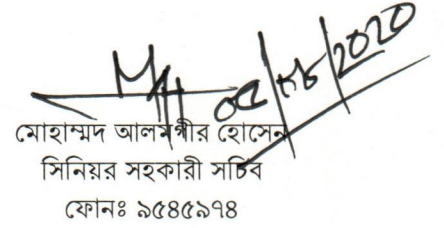 মোহাম্মদ আলমগীর হোসেন
সিনিয়র সহকারী সচিব
ফোনঃ ৯৫৪৫৯৭৪